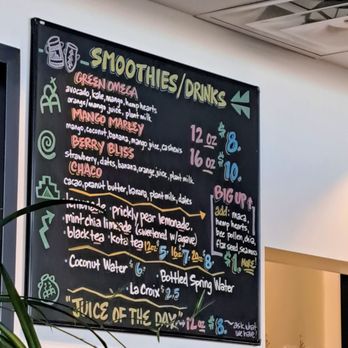 SMOOTHIES/DRINKS
GREEN OMEGA
avocado, kale, mango, hemp hearts
orange/mango juice, plant milk
MANGO MARLEY
mango, coconut, banana, mango juice, cashews
BERRY BLISS
strawberry, dates, banana, orange juice, plant milk
CHACO
cacao, peanut butter, banana, plant milk, dates
12 oz $8.
16 oz $10.
BIG UP
add: maca,
hemp hearts,
bee pollen, chia,
flax seed, cashews
$1. MORE!
lemonade · prickly pear lemonade,
· mint chia limeade (sweetened w/agave)
· black tea · kota tea 12oz 5. 16oz 7. 20oz 8.
· Coconut Water $6. · Bottled Spring Water
· La Croix $2.5
"JUICE OF THE DAY" 12oz $8. ~ask what
we have!